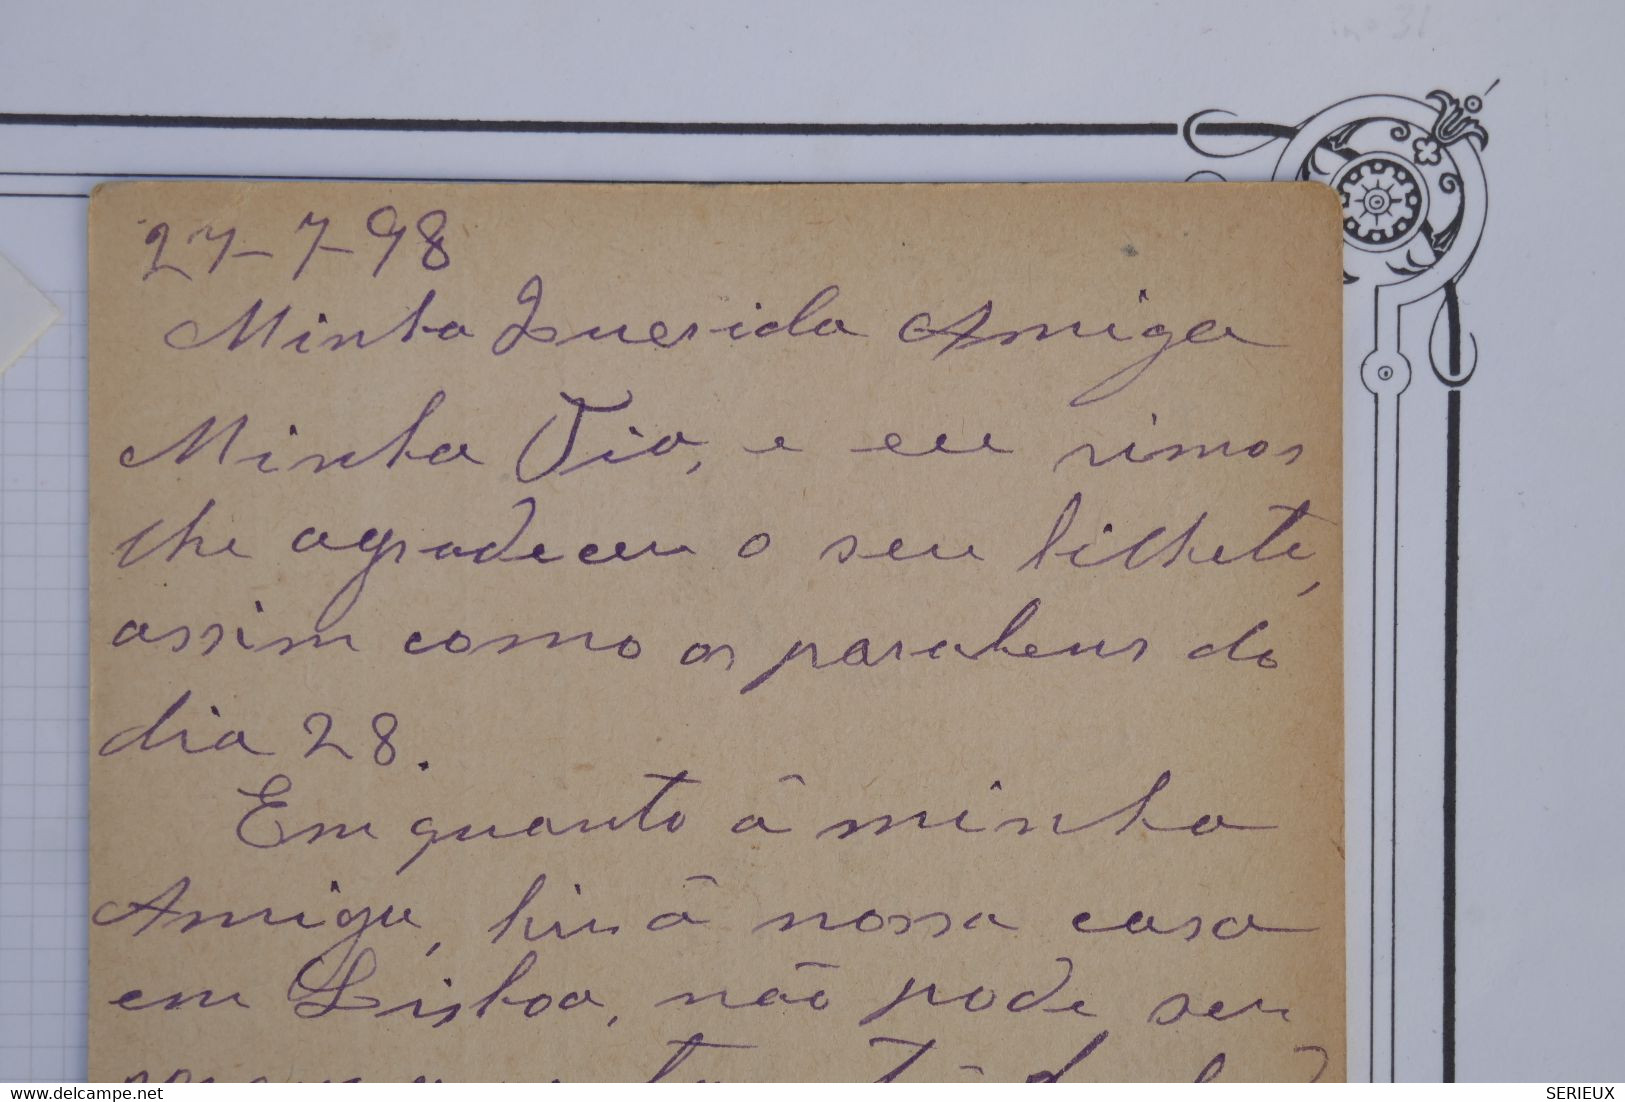 27-7-98
Minha Querida Amiga
Minha Tia, e eu vimos
lhe agradecer o seu bilhete,
assim como os parabens do
dia 28.
Em quanto á minha
Amiga, hir á nossa casa
em Lisboa, não pode ser
delcampe.net
SERIEUX